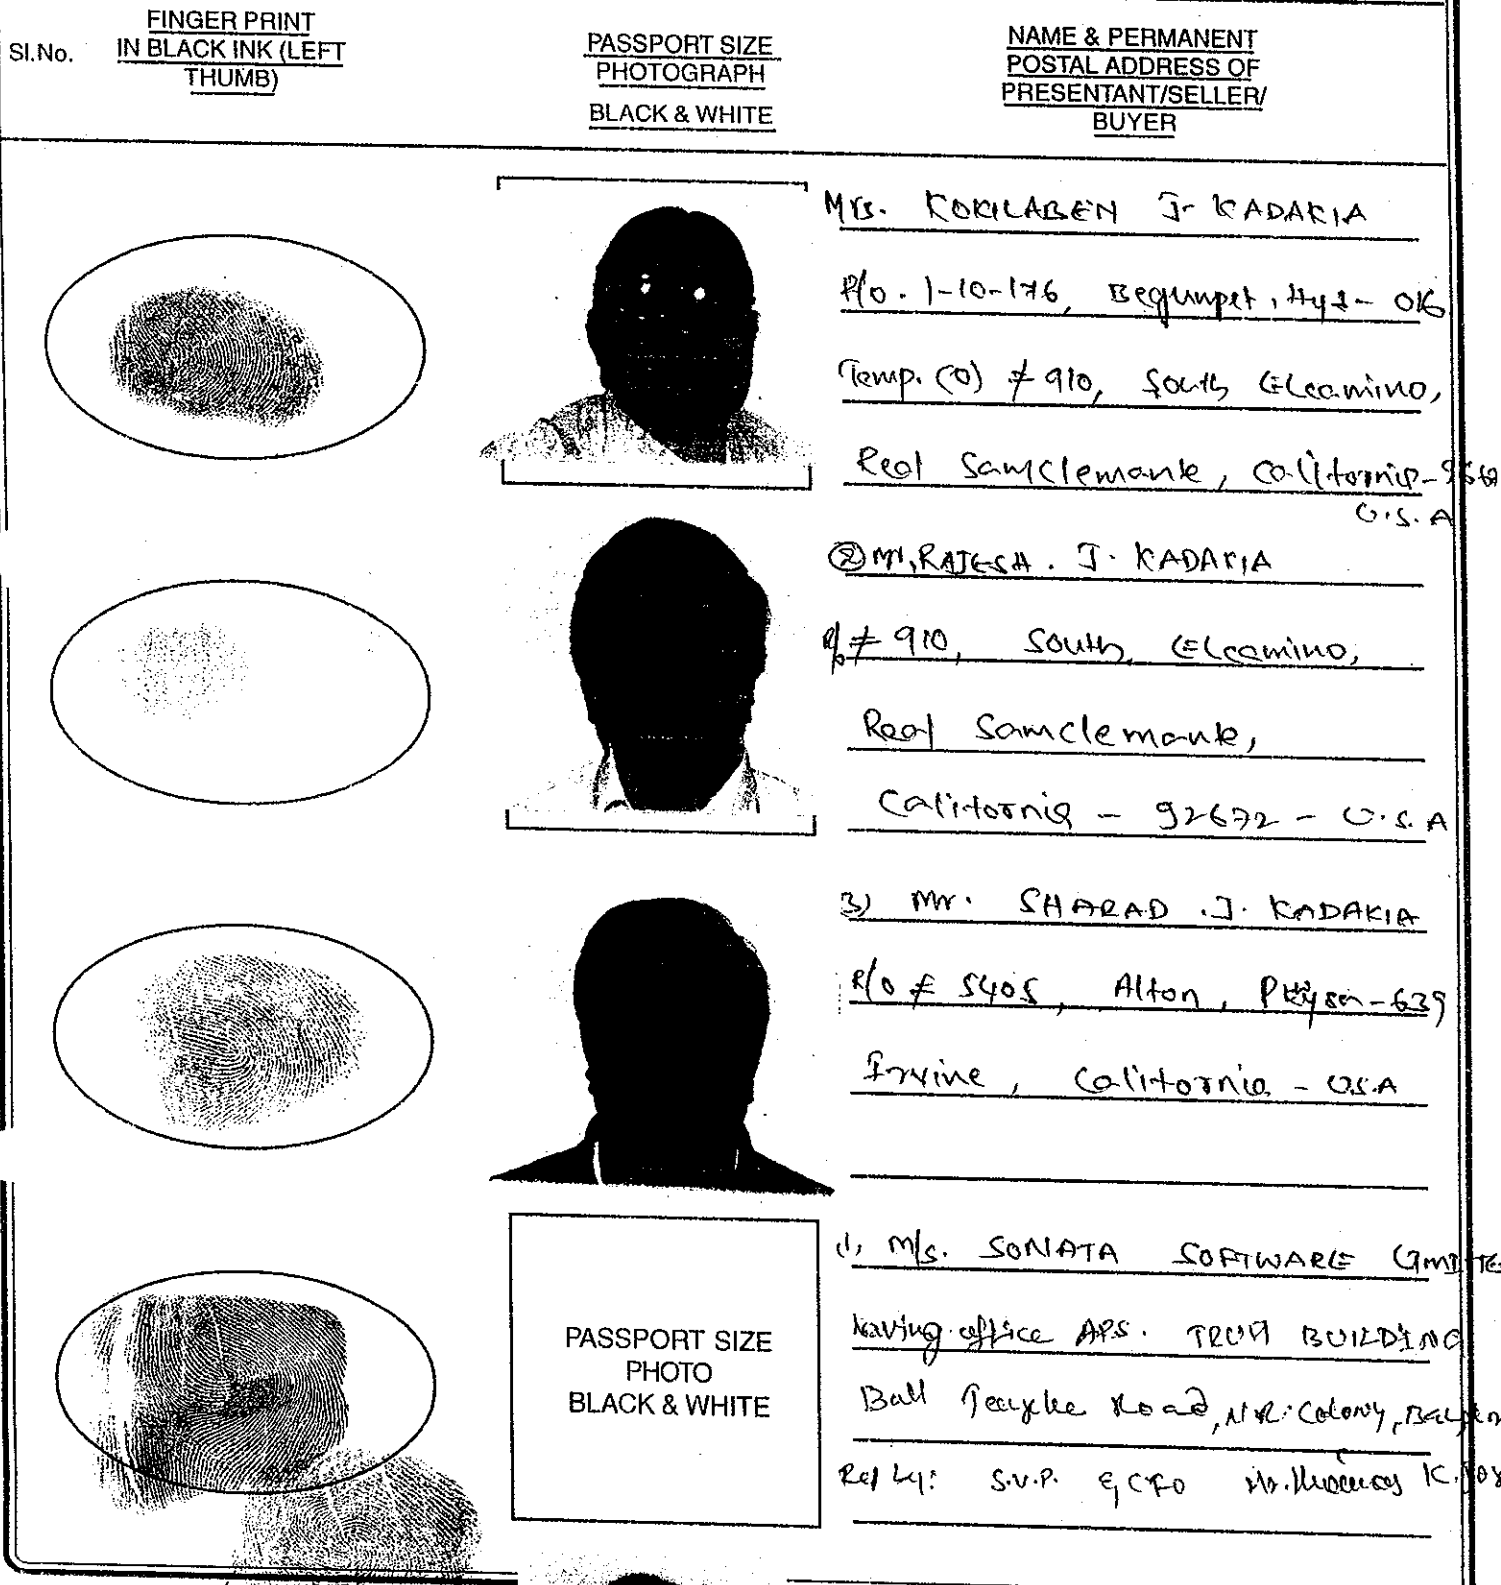 Sl.No.
FINGER PRINT
IN BLACK INK (LEFT
THUMB)
PASSPORT SIZE
PHOTOGRAPH
BLACK & WHITE
NAME & PERMANENT
POSTAL ADDRESS OF
PRESENTANT/SELLER/
BUYER
Mrs. KOKILABEN J. KADAKIA
R/o. 1-10-176, Begumpet, Hyd- 016
Temp. (O) # 910, South Elcamino,
Real Samclemante, California-
U.S.A
② Mr. RAJESH. J. KADAKIA
R/o # 910, South, Elcamino,
Real Samclemante,
California - 92672 - U.S.A
3) Mr. SHARAD .J. KADAKIA
R/o # 5405, Alton, -639
Irvine, California - USA
PASSPORT SIZE
PHOTO
BLACK & WHITE
1, M/s. SONATA SOFTWARE
having office APS. TRUST BUILDING
Bull Temple Road, N.R. Colony,
Rep by: S.V.P. & CFO Mr.